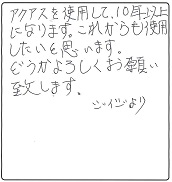 アクアスを使用して、10年以上
になります。これからも使用
したいと思います。
どうかよろしくお願い
致します。
ジイジより